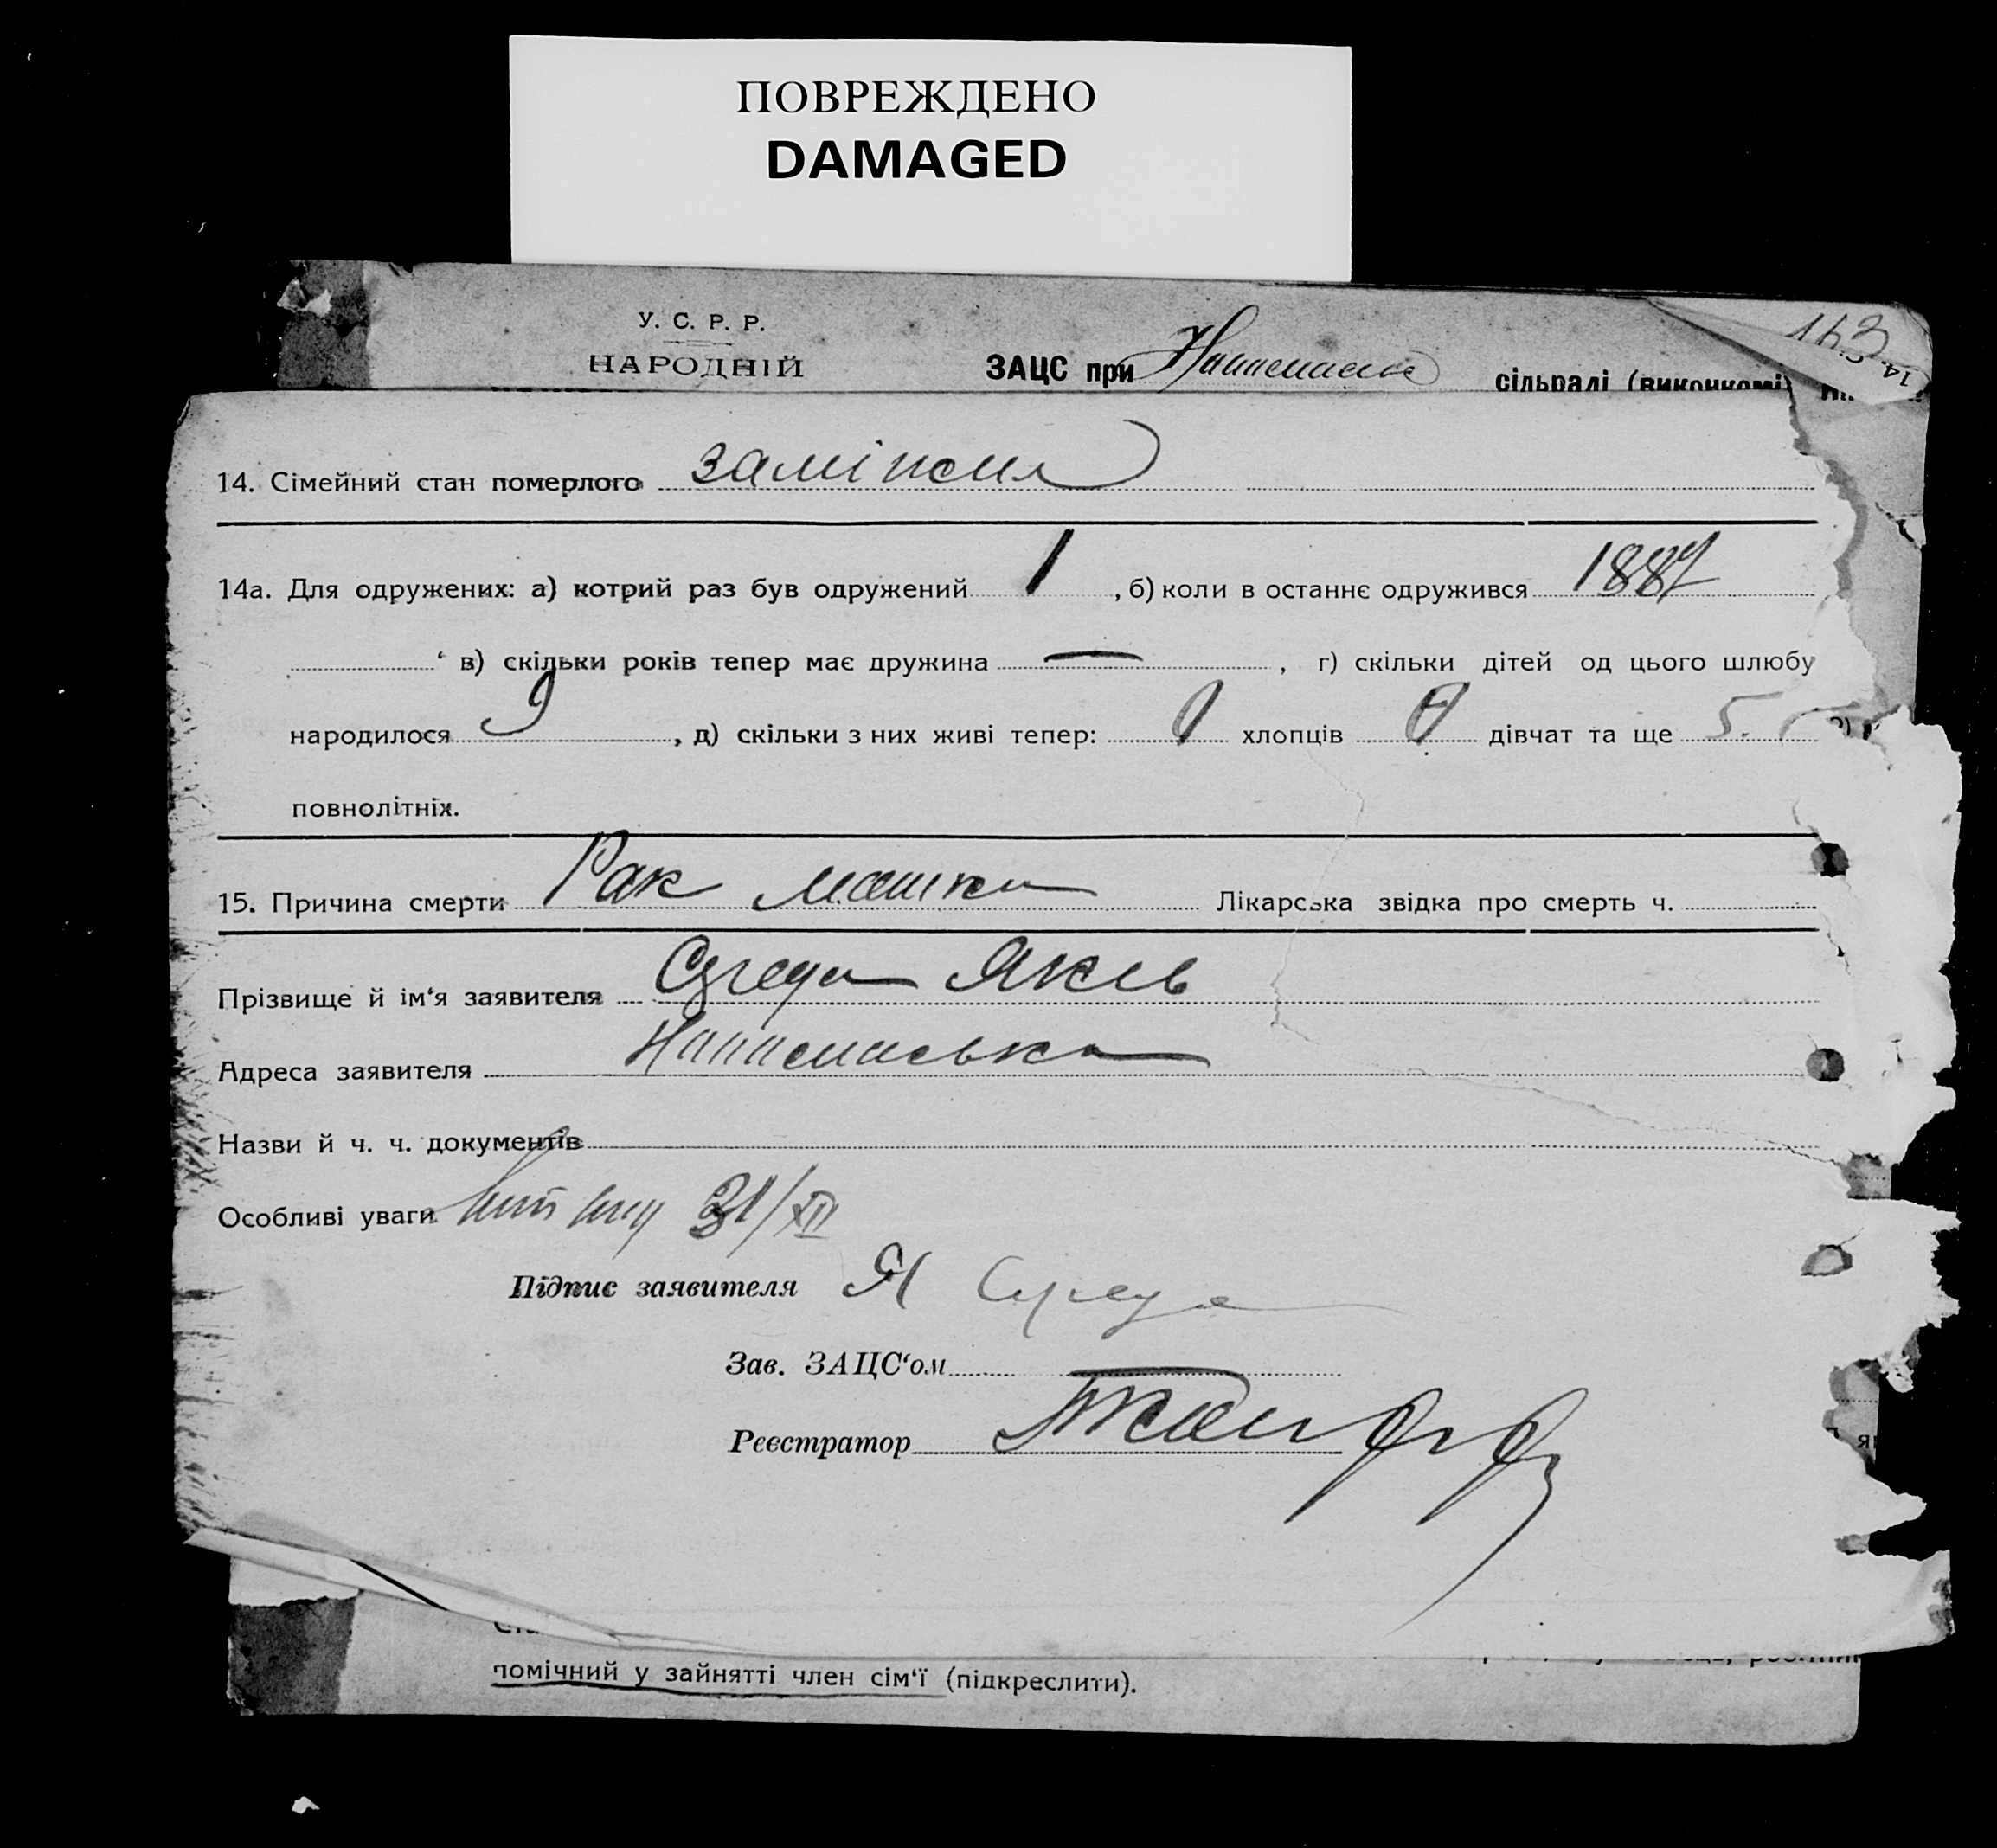 ПОВРЕЖДЕНО
DAMAGED
163
У. С. Р. Р.
НАРОДНІЙ
ЗАЦС при сільраді (виконкомі)
14. Сімейний стан померлого заміжня
14а. Для одружених: а) котрий раз був одружений 1, б) коли в останнє одружився 1887
в) скільки років тепер має дружина —, г) скільки дітей од цього шлюбу
народилося 9, д) скільки з них живі тепер: хлопців дівчат та ще 5.
повнолітніх.
15. Причина смерти Рак матки Лікарська звідка про смерть ч.
Прізвище й ім‘я заявителя Яків
Адреса заявителя
Назви й ч. ч. документів
Особливі уваги 31/XII
Підпис заявителя Я
Зав. ЗАЦС‘ом
Реєстратор
помічний у зайнятті член сім‘ї (підкреслити).